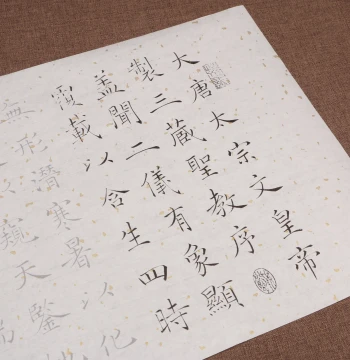 大唐太宗文皇帝
製三藏聖教序
蓋聞二儀有象顯
覆載以含生四時
無形潛寒暑以化
窺天鑒